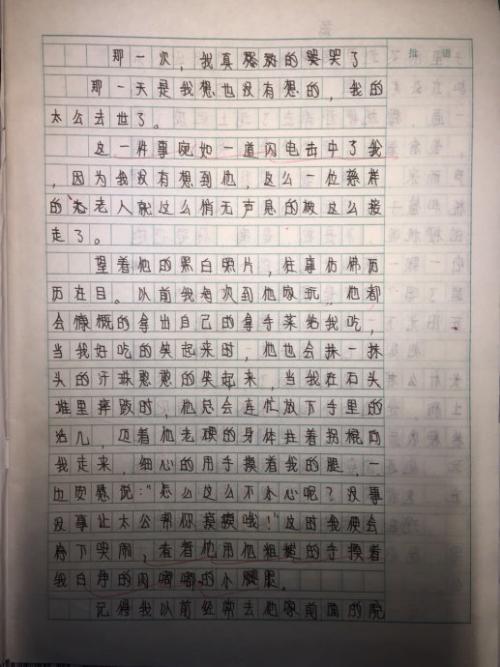 批 语
那一次，我真的哭了
那一天是我想也没有想的，我的
太公去世了。
这一件事宛如一道闪电击中了我
，因为我没有想到他，这么一位慈祥
的老老人就这么悄无声息的被这么接
走了。
望着他的黑白照片，往事仿佛历
历在目。以前我每次到他家玩，他都
会慷慨的拿出自己的拿手菜给我吃，
当我好吃的笑起来时，他也会抹一抹
头的汗珠憨憨的笑起来，当我在石头
堆里摔跤时，他总会连忙放下手里的
活儿，迈着他老硬的身体拄着拐棍向
我走来，细心的用手摸着我的腿，一
边安慰说："怎么这么不小心呢？没事
没事让太公帮你摸摸哦！"这时我便会
停下哭闹，看着他用他粗糙的手摸着
我白净的肉嘟嘟的小腿。
记得我以前经常去他家前面的